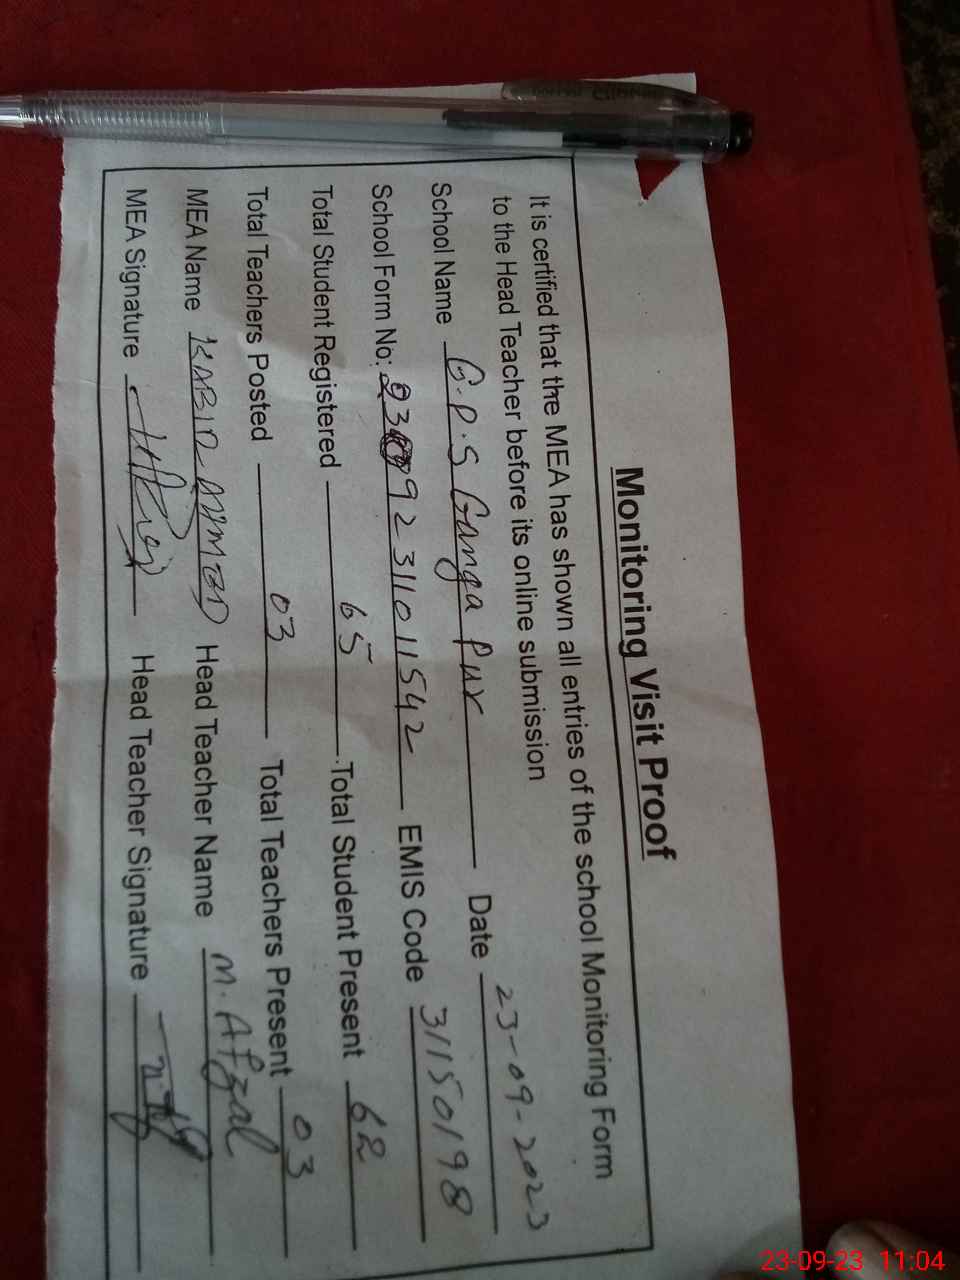 Monitoring Visit Proof
It is certified that the MEA has shown all entries of the school Monitoring Form
to the Head Teacher before its online submission
School Name G.P.S Ganga Pur Date 23-09-2023
School Form No: 92311011542 EMIS Code 31150198
Total Student Registered 65 Total Student Present 62
Total Teachers Posted 03 Total Teachers Present 03
MEA Name KABIR AHMED Head Teacher Name M. Afzal
MEA Signature Head Teacher Signature
23-09-23 11:04